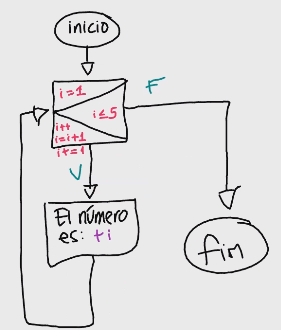 inicio
i=1
F
i≤5
i++
i=i+1
i+=i
V
El número
es: +i
fin